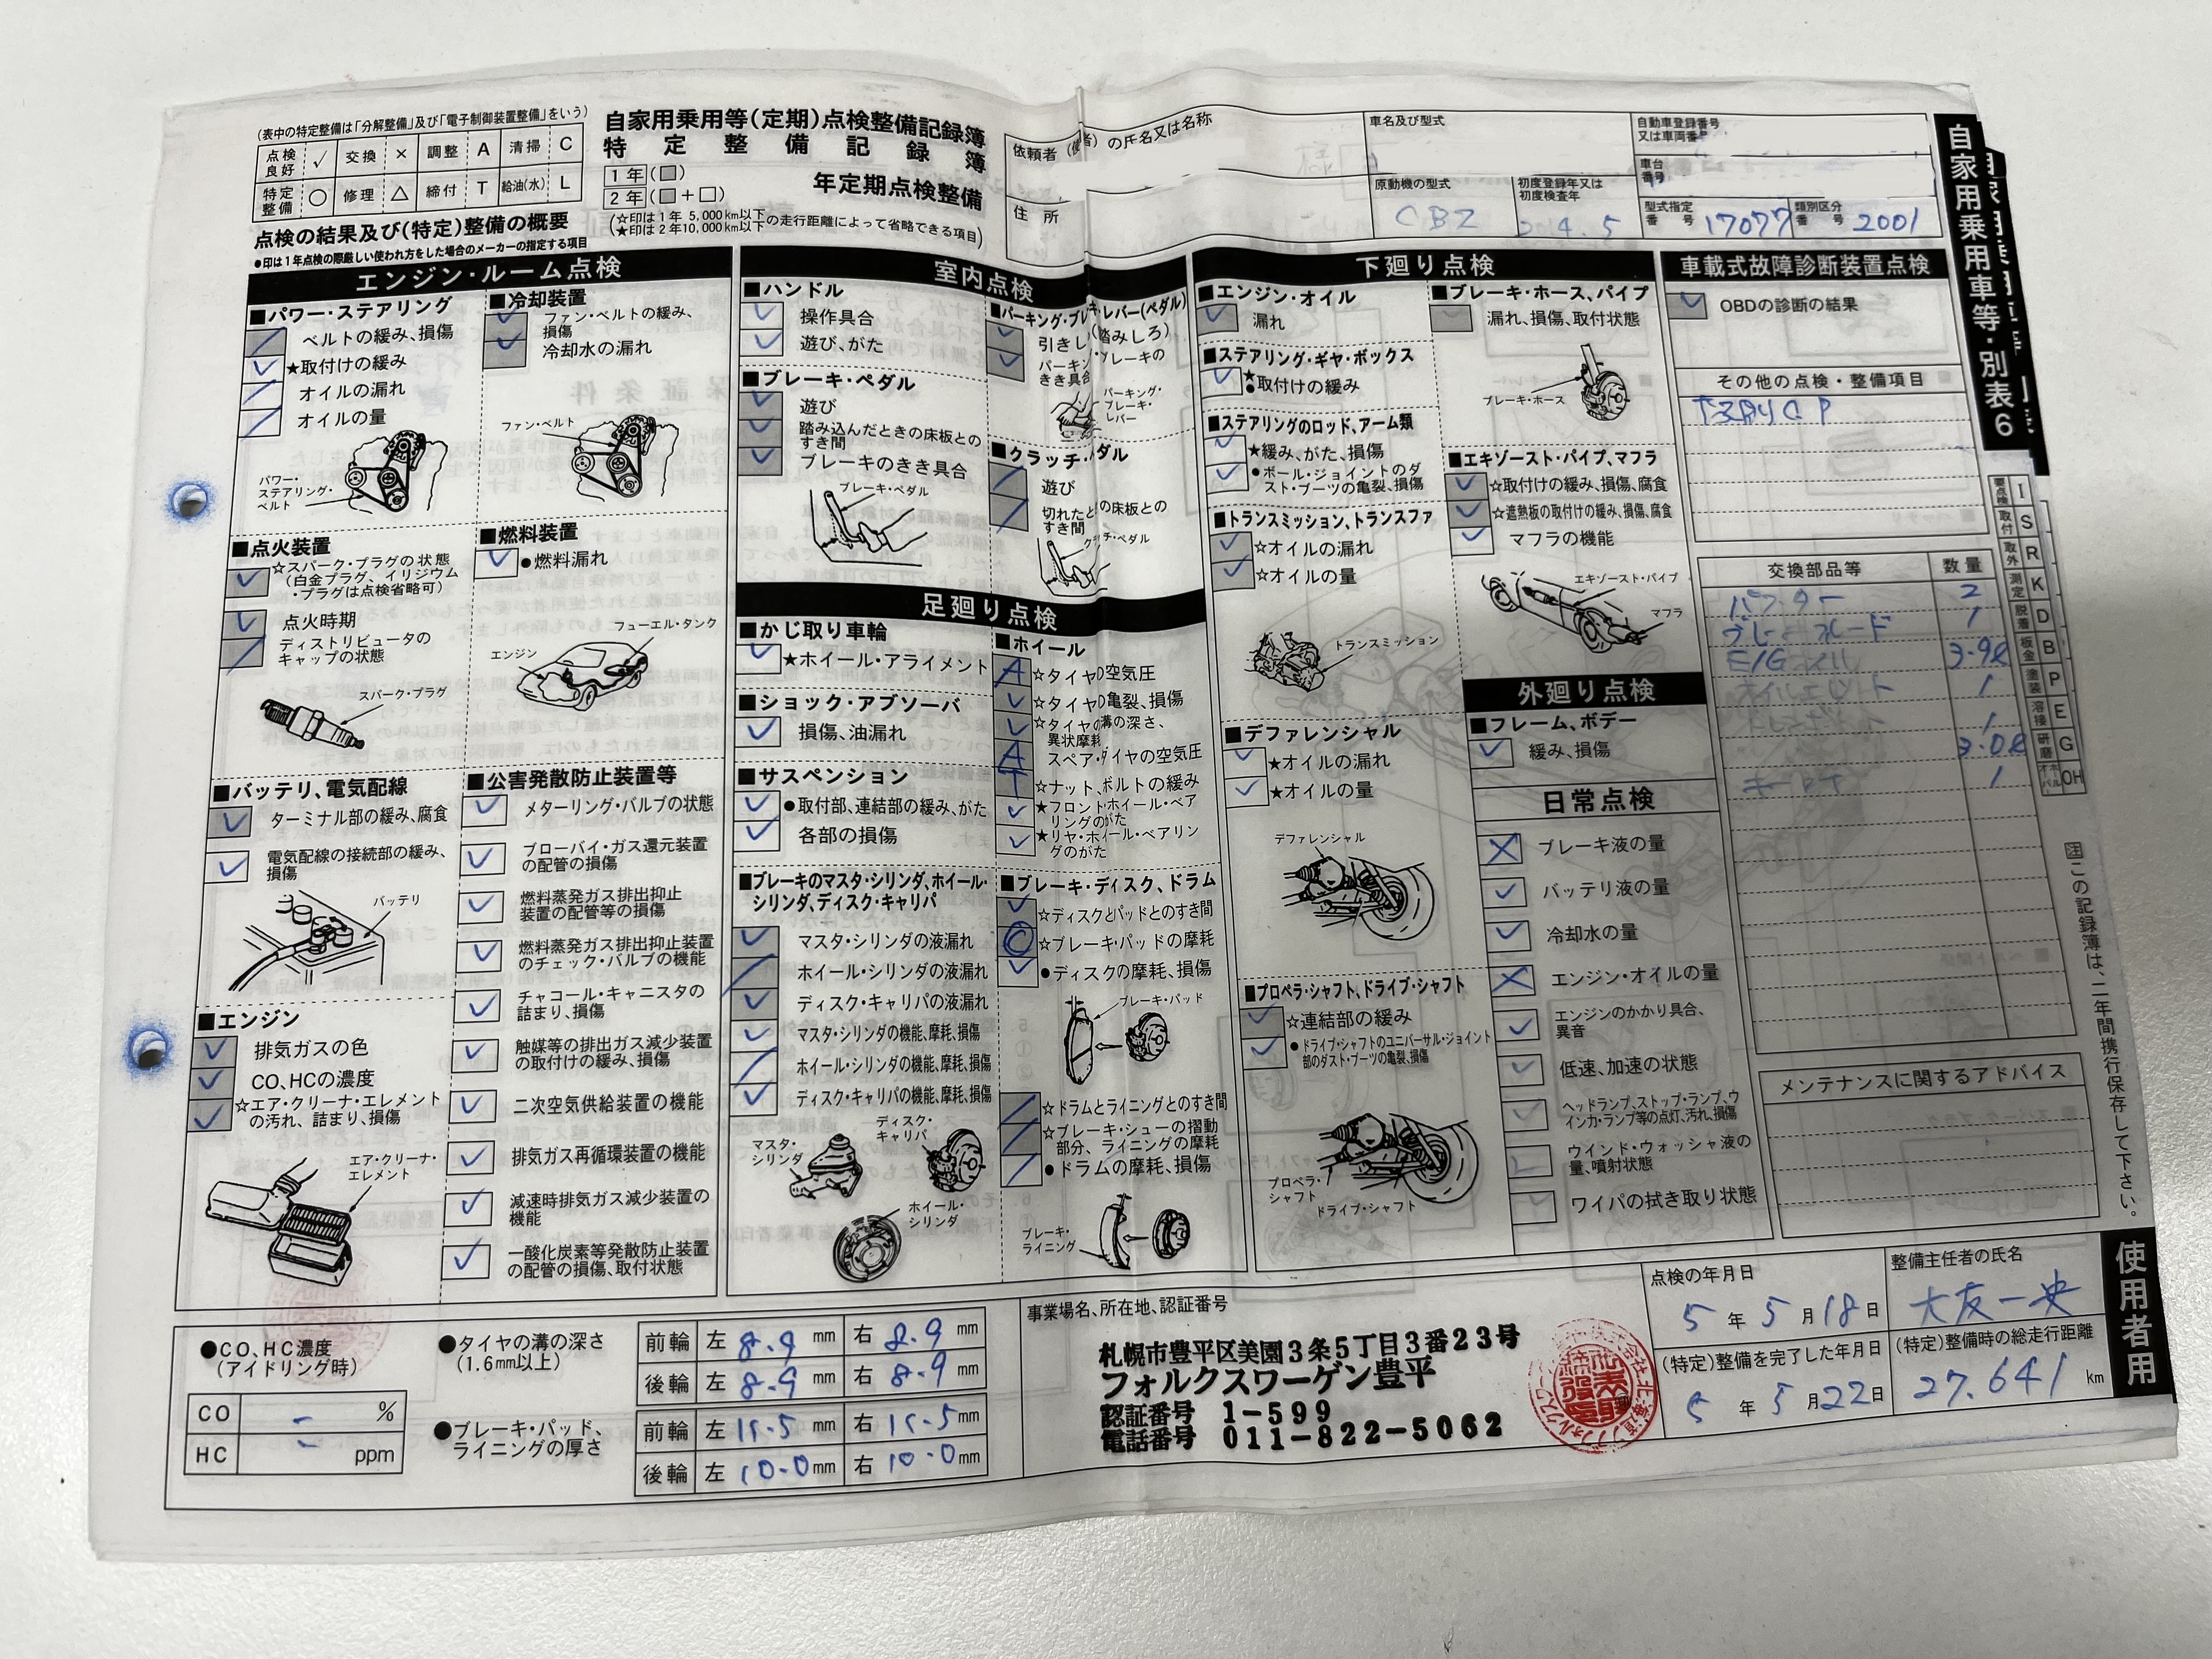 (表中の特定整備は「分解整備」及び「電子制御装置整備」をいう)
点検良好 ✓ 交換 × 調整 A 清掃 C
特定整備 ○ 修理 △ 締付 T 給油(水) L
点検の結果及び(特定)整備の概要
●印は1年点検の際厳しい使われ方をした場合のメーカーの指定する項目
自家用乗用等(定期)点検整備記録簿
特定整備記録簿
1年(■)
2年(■+□)
年定期点検整備
(☆印は1年 5,000km以下
★印は2年10,000km以下の走行距離によって省略できる項目)
依頼者(使 者)の氏名又は名称
様
住所
車名及び型式
原動機の型式
CBZ
初度登録年又は初度検査年
4.5
自動車登録番号又は車両番号
車台番号
型式指定番号 17077
類別区分番号 2001
自家用乗用車等・別表6
エンジン・ルーム点検
■パワー・ステアリング
ベルトの緩み、損傷
★取付けの緩み
オイルの漏れ
オイルの量
パワー・ステアリング・ベルト
■冷却装置
ファン・ベルトの緩み、損傷
冷却水の漏れ
ファン・ベルト
■点火装置
☆スパーク・プラグの状態
(白金プラグ、イリジウム・プラグは点検省略可)
点火時期
ディストリビュータのキャップの状態
スパーク・プラグ
■燃料装置
●燃料漏れ
フューエル・タンク
エンジン
■バッテリ、電気配線
ターミナル部の緩み、腐食
電気配線の接続部の緩み、損傷
バッテリ
■公害発散防止装置等
メターリング・バルブの状態
ブローバイ・ガス還元装置の配管の損傷
燃料蒸発ガス排出抑止装置の配管等の損傷
燃料蒸発ガス排出抑止装置のチェック・バルブの機能
チャコール・キャニスタの詰まり、損傷
触媒等の排出ガス減少装置の取付けの緩み、損傷
二次空気供給装置の機能
排気ガス再循環装置の機能
減速時排気ガス減少装置の機能
一酸化炭素等発散防止装置の配管の損傷、取付状態
■エンジン
排気ガスの色
CO、HCの濃度
☆エア・クリーナ・エレメントの汚れ、詰まり、損傷
エア・クリーナ・エレメント
室内点検
■ハンドル
操作具合
遊び、がた
■ブレーキ・ペダル
遊び
踏み込んだときの床板とのすき間
ブレーキのきき具合
ブレーキ・ペダル
■パーキング・ブレ キ・レバー(ペダル)
引きし (踏みしろ)
パーキン ブレーキのきき具合
パーキング・ブレーキ・レバー
■クラッチ・ ダル
遊び
切れたと の床板とのすき間
ペダル
足廻り点検
■かじ取り車輪
★ホイール・アライメント
■ショック・アブソーバ
損傷、油漏れ
■サスペンション
●取付部、連結部の緩み、がた
各部の損傷
■ブレーキのマスタ・シリンダ、ホイール・シリンダ、ディスク・キャリパ
マスタ・シリンダの液漏れ
ホイール・シリンダの液漏れ
ディスク・キャリパの液漏れ
マスタ・シリンダの機能、摩耗、損傷
ホイール・シリンダの機能、摩耗、損傷
ディスク・キャリパの機能、摩耗、損傷
マスタ・シリンダ
ディスク・キャリパ
ホイール・シリンダ
■ホイール
A ☆タイヤの空気圧
☆タイヤの亀裂、損傷
☆タイヤの溝の深さ、異状摩耗
A スペア・タイヤの空気圧
T ☆ナット、ボルトの緩み
★フロント・ホイール・ベアリングのがた
★リヤ・ホイール・ベアリングのがた
■ブレーキ・ディスク、ドラム
☆ディスクとパッドとのすき間
☆ブレーキ・パッドの摩耗
●ディスクの摩耗、損傷
ブレーキ・パッド
☆ドラムとライニングとのすき間
☆ブレーキ・シューの摺動部分、ライニングの摩耗
●ドラムの摩耗、損傷
ブレーキ・ライニング
下廻り点検
■エンジン・オイル
漏れ
■ステアリング・ギヤ・ボックス
★●取付けの緩み
■ステアリングのロッド、アーム類
★緩み、がた、損傷
●ボール・ジョイントのダスト・ブーツの亀裂、損傷
■トランスミッション、トランスファ
☆オイルの漏れ
☆オイルの量
トランスミッション
■デファレンシャル
★オイルの漏れ
★オイルの量
デファレンシャル
■プロペラ・シャフト、ドライブ・シャフト
☆連結部の緩み
●ドライブ・シャフトのユニバーサル・ジョイント部のダスト・ブーツの亀裂、損傷
プロペラ・シャフト
ドライブ・シャフト
■ブレーキ・ホース、パイプ
漏れ、損傷、取付状態
ブレーキ・ホース
■エキゾースト・パイプ、マフラ
☆取付けの緩み、損傷、腐食
☆遮熱板の取付けの緩み、損傷、腐食
マフラの機能
エキゾースト・パイプ
マフラ
外廻り点検
■フレーム、ボデー
緩み、損傷
日常点検
ブレーキ液の量
バッテリ液の量
冷却水の量
エンジン・オイルの量
エンジンのかかり具合、異音
低速、加速の状態
ヘッドランプ、ストップ・ランプ、ウインカ・ランプ等の点灯、汚れ、損傷
ウインド・ウォッシャ液の量、噴射状態
ワイパの拭き取り状態
車載式故障診断装置点検
OBDの診断の結果
その他の点検・整備項目
交換部品等 数量
2
1
E/Gオイル 3.9ℓ
オイルエレメント 1
1
3.0ℓ
1
メンテナンスに関するアドバイス
要点検 I
取付 S
取外 R
測定 K
脱着 D
板金 B
塗装 P
溶接 E
研磨 G
オーバーホール OH
注この記録簿は、二年間携行保存して下さい。
使用者用
●CO、HC濃度(アイドリング時)
CO － %
HC － ppm
●タイヤの溝の深さ(1.6mm以上)
前輪 左 8.9 mm 右 8.9 mm
後輪 左 8.9 mm 右 8.9 mm
●ブレーキ・パッド、ライニングの厚さ
前輪 左 11.5 mm 右 11.5 mm
後輪 左 10.0 mm 右 10.0 mm
事業場名、所在地、認証番号
札幌市豊平区美園3条5丁目3番23号
フォルクスワーゲン豊平
認証番号 1-599
電話番号 011-822-5062
点検の年月日
5年5月18日
(特定)整備を完了した年月日
5年5月22日
整備主任者の氏名
大友一央
(特定)整備時の総走行距離
27.641 km